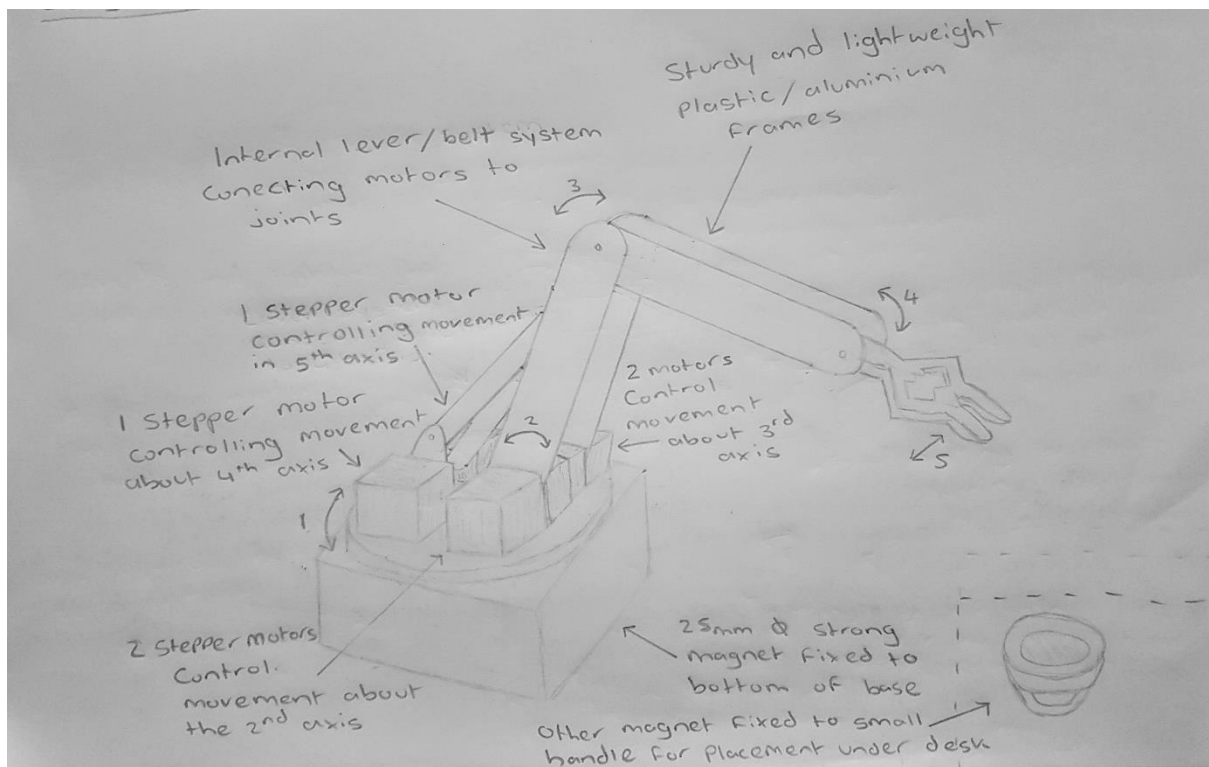 Sturdy and lightweight
plastic/aluminium
frames
Internal lever/belt system
conecting motors to
joints
3
1 stepper motor
controlling movement
in 5th axis
4
1 Stepper motor
controlling movement
about 4th axis
2 motors
Control
movement
about 3rd
axis
2
5
1
2 Stepper motors
Control.
movement about
the 2nd axis
25mm ϕ strong
magnet fixed to
bottom of base
Other magnet fixed to small
handle for placement under desk